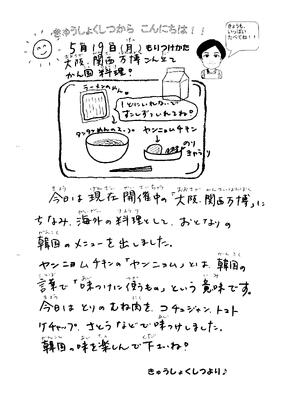 きゅうしょくしつから こんにちは！！
きょうも、
いっぱい
たべてね！！
5月19日(月) もりつけかた
大阪・関西万博こんだて
かん国料理♪
ラーメンのめん。
1どにいれないで
すこしずついれてね。
タンタンめんのスープ。
ヤンニョムチキン
のり
きゅうり
今日は現在開催中の「大阪・関西万博」に
ちなみ、海外の料理として、おとなりの
韓国のメニューを出しました。
ヤンニョムチキンの「ヤンニョム」とは、韓国の
言葉で「味つけに使うもの」という意味です。
今日はとりのむね肉を、コチュジャン、トマト
ケチャップ、さとうなどで味つけしました。
韓国の味を楽しんで下さいね？
きゅうしょくしつより♪